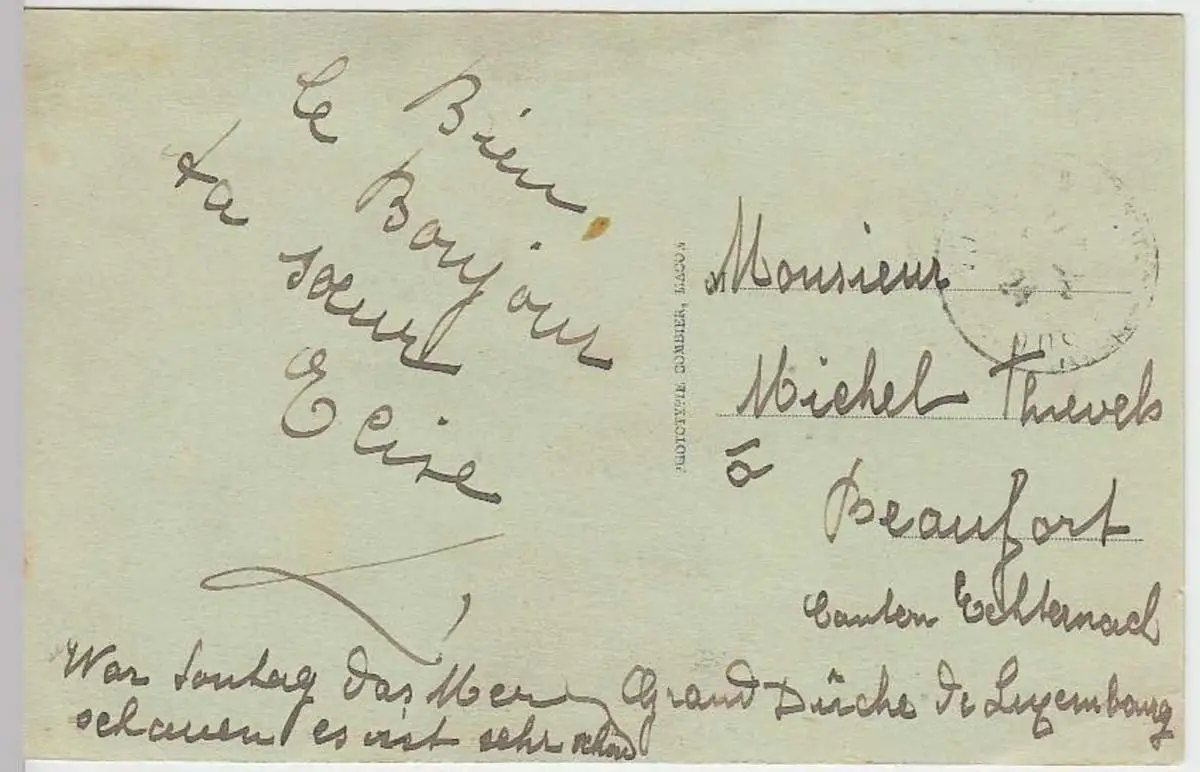 Bien
Le Bonjour
ta sœur
Elise
War Sontag das Meer
schauen es ist sehr schön
PHOTOTYPIE COMBIER, MACON
Monsieur
Michel Thievels
à
Beaufort
Canton Echternach
Grand Düche de Luxembourg